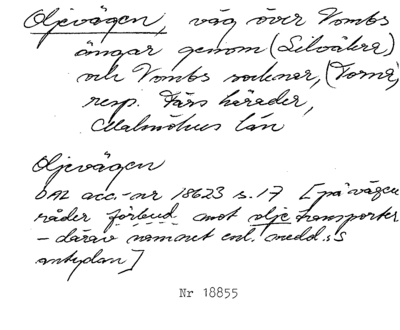 Oljevägen, väg över Vombs
ängar genom (Silvåkra)
och Vombs socknar, (Torna)
resp. Färs härader,
Malmöhus län
Oljevägen
DAL acc.-nr 18623 s. 17 [på vägen
råder förbud mot oljetransporter
- därav namnet enl. medd:s
antydan]
Nr 18855